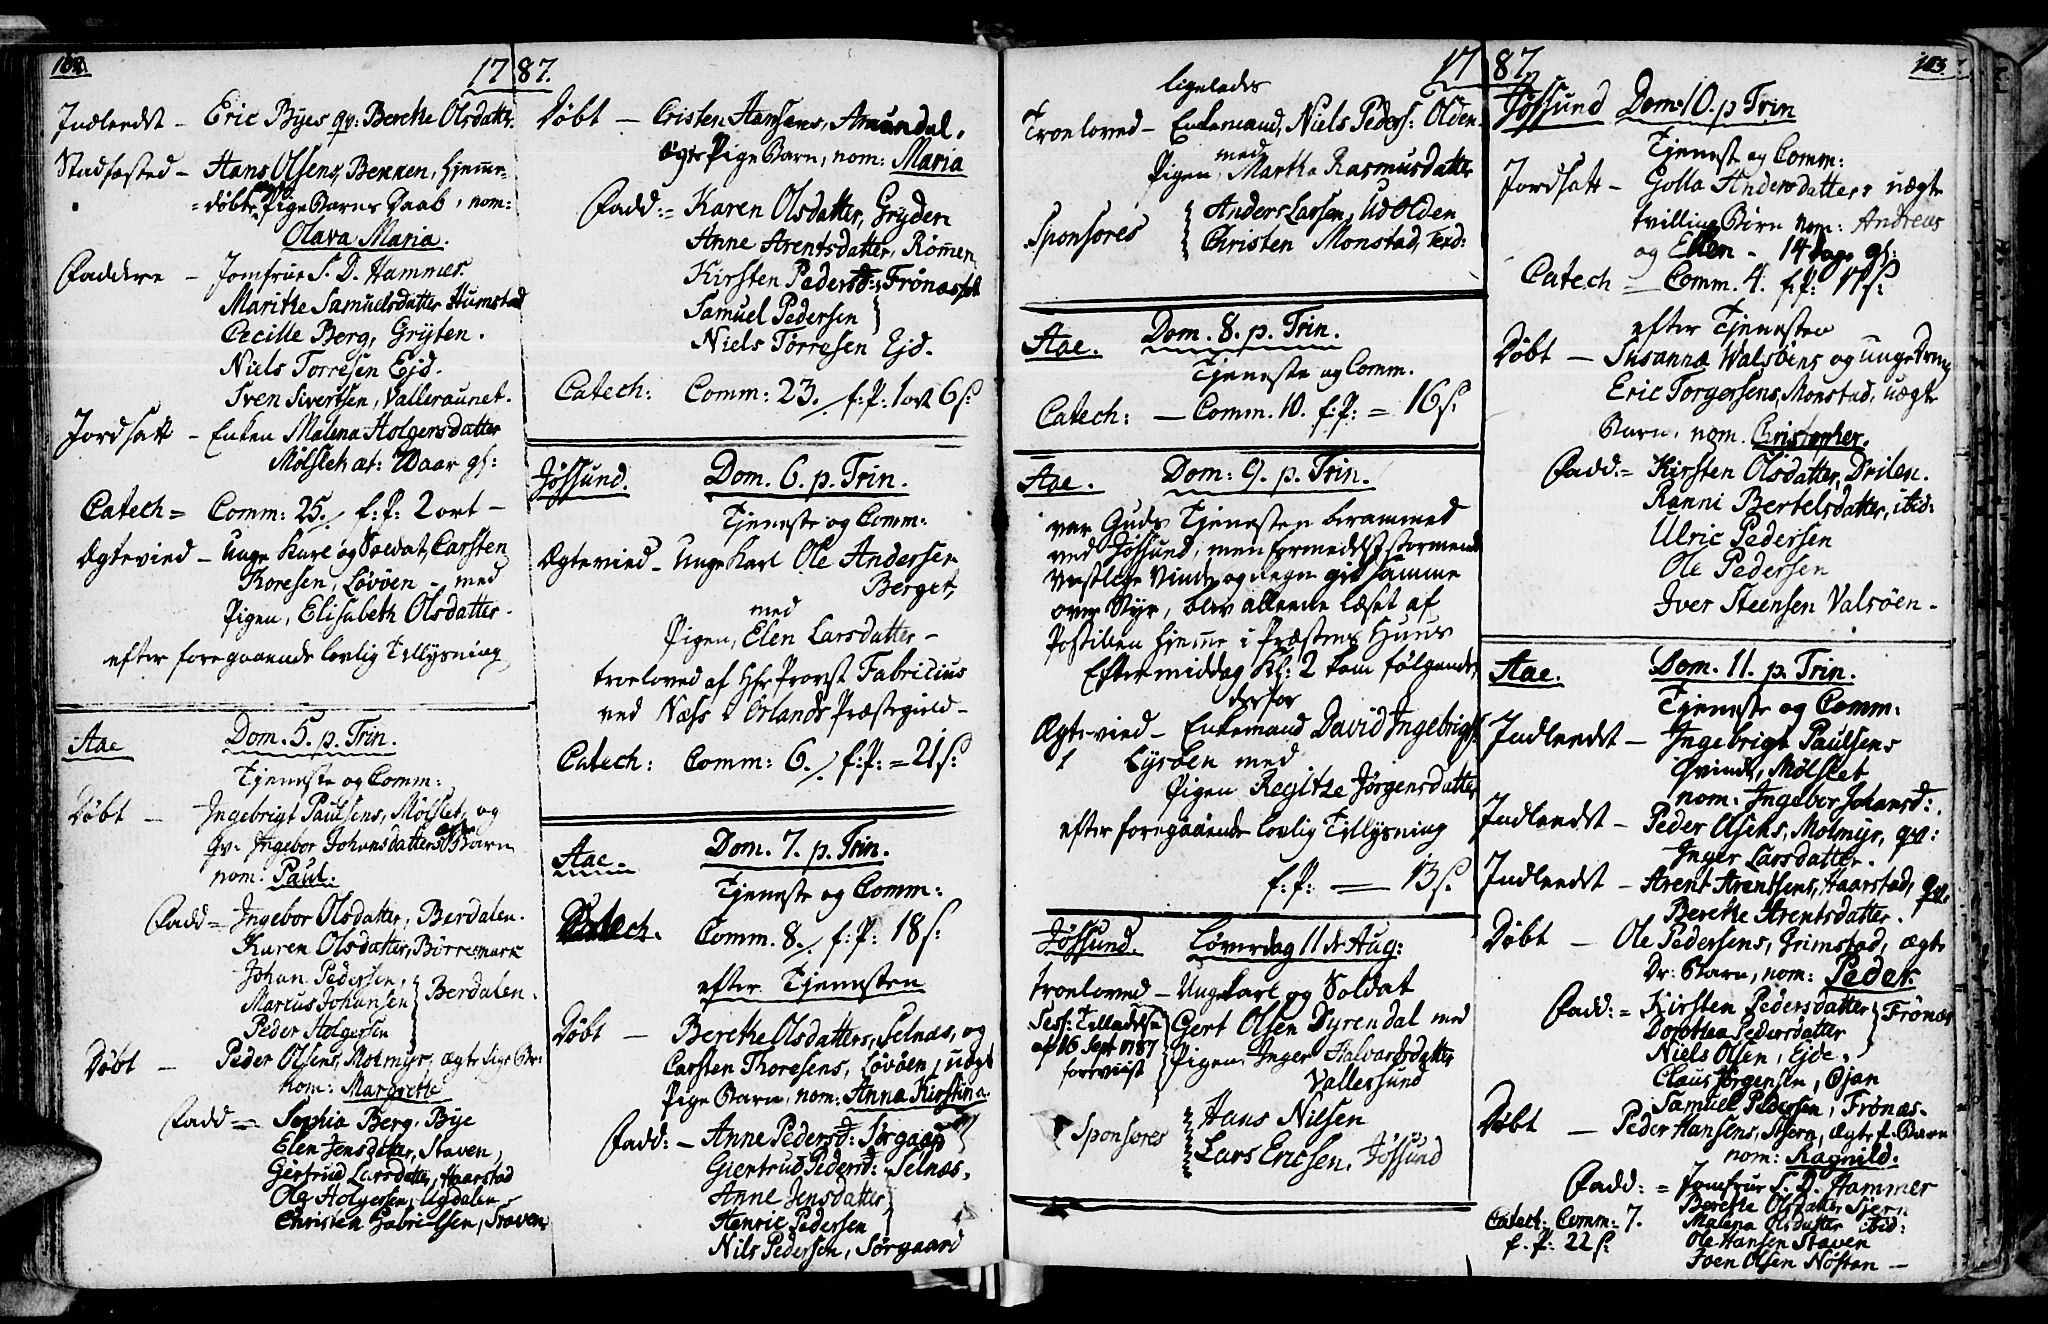 162.
1787.
Indleedt – Eric Byes qv: Berethe Olsdatter.
Stadfæsted – Hans Olsens, Bekken, hjemme-
døbte Pige Barns Daab, nom:
Olava Maria.
Faddere – Jomfrue S. D. Hammer.
Marithe Samuelsdatter Humstad
Cecille Berg, Gryten.
Niels Torresen Ejd.
Sven Sivertsen, Valleraunet.
Jordsatt – Enken Malena Holgersdatter
Mølslet at: Waar gl:
Catech = Comm: 25. f: P: 2 ort –
Ægtevied – Unge Karl og Soldat, Carsten
Thoresen, Løvøen – med
Pigen, Elisabeth Olsdatter.
efter foregaaende lovlig Tillysning
Aae Dom. 5. p. Trin.
Tjeneste og Comm:
Døbt – Ingebrigt Paulsens, Mølslet, og
qv. Ingebor Johansdatters Barn
nom: Paul.
Fadd = Ingebor Olsdatter, Berdalen.
Karen Olsdatter, Borremark
Johan Pedersen,
Marcus Johansen } Berdalen.
Peder Holgersen
Døbt – Peder Olsens, Molmyr, ægte Pige Br:
nom: Margrethe
Fadd = Sophia Berg. Bye
Elen Jensdatter, Staven,
Giertrud Larsdatter, Haarstad
Ole Holgersen, Ugdalen
Christen Gabrielsen, Staven
Døbt – Cristen Hansens, Amundal,
ægte Pige Barn, nom: Maria
Fadd: = Karen Olsdatter, Gryden
Anne Arentsdatter, Rømen
Kirsten Pedersd:, Frønesset
Samuel Pedersen }
Niels Torresen Ejd.
Catech: Comm: 23. f: P. 1 ort 6 s:
Jøssund. Dom. 6. p. Trin.
Tjeneste og Comm:
Ægtevied – Unge Karl Ole Andersen
Berget,
med
Pigen, Elen Larsdatter –
troeloved af Hr Provst Fabricius
ved Næss i Ørlands Præstegield –
Catech: Comm: 6. f: P: = 21 s:
Aae. Dom. 7. p. Trin.
Tjeneste og Comm:
Catech. Comm. 8. f: P: 18 s:
efter Tjenesten
Døbt – Berethe Olsdatters, Selnæs, og
Carsten Thoresens, Løvøen, uægt
Pige Barn, nom: Anna Kirstina.
Fadd: – Anne Pedersd: Sørgaard
Giertrud Pedersd: Selnæs,
Anne Jensdatter
Henric Pedersen
Nils Pedersen, Sørgaard
163.
1787.
ligeledes
Troeloved – Enkemand, Niels Peders: Olden
med
Pigen, Martha Rasmusdatter
Sponsores { Anders Larsen, Ud Olden
Christen Monstad,
Aae. Dom. 8. p. Trin.
Tjeneste og Comm.
Catech: – Comm. 10. f: P: = 16 s:
Aae. Dom: 9. p. Trin.
var Guds Tjenesten berammed
ved Jøssund, men formedelst stormende
Vestlige Vinde og Regn
over Styr, blev alleene læset af
Postillen hjemme i Præstens Huus
Eftermiddag Kl: 2 kom følgende,
derfor
Ægte-vied – Enkemand David Ingebrigts:
Lysøen med
Pigen Regitze Jørgensdatter
efter foregaaende lovlig Tillysning
f: P: = 13 s.
Jøssund. Løverdag 11 dr Aug:
troeloved – Ungekarl og Soldat
Sess: Tilladelse Gert Olsen Dyrendal med
af 16 Sept 1787 Pigen, Inger Halvardsdatter
foreviist Vallersund
Sponsores { Hans Nilsen
Lars Ericsen, Jøssund
Jøssund Dom: 10. p Trin
Tjeneste og Comm:
Jordsatt – Golla Andersdatters uægte
tvilling Børn nom: Andreas
og Ellen – 14 dage gl:
Catech = Comm. 4. f: P: 17 s:
efter Tjenesten
Døbt – Susanna Walsøens og unge Dreng
Eric Torgersens, Monstad, uægte
Barn, nom. Christopher.
Fadd: = Kirsten Olsdatter, Drilen.
Ranni Bertelsdatter, ibid:
Ulric Pedersen
Ole Pedersen
Iver Steensen Valsøen –
Aae. Dom. 11. p. Trin.
Tjeneste og Comm:
Indleedt – Ingebrigt Paulsens
Qvinde, Mølslet
nom: Ingebor Johansd:
Indleedt – Peder Olsens, Molmyr, qv:
Inger Larsdatter.
Indleedt – Arent Arentsens, Haarstad, qv.
Berethe Arentsdatter.
Døbt – Ole Pedersens, Grimstad, ægte
Dr: Barn, nom: Peder.
Fadd: = Kirsten Pedersdatter } Frønes
Dorothea Pedersdatter
Niels Olsen, Ejde,
Claus Jørgensen, Øjan
Samuel Pedersen, Frønæs.
Døbt – Peder Hansens, Stiern, ægte P. Barn
nom: Ragnild.
Fadd: = Jomfrue S. D. Hammer
Berethe Olsdatter Stiern
Catech: Comm: 7. Malena Olsdatter ibid:
f. P: 22 s: Ole Hansen Staven
Joen Olsen Nøstan –